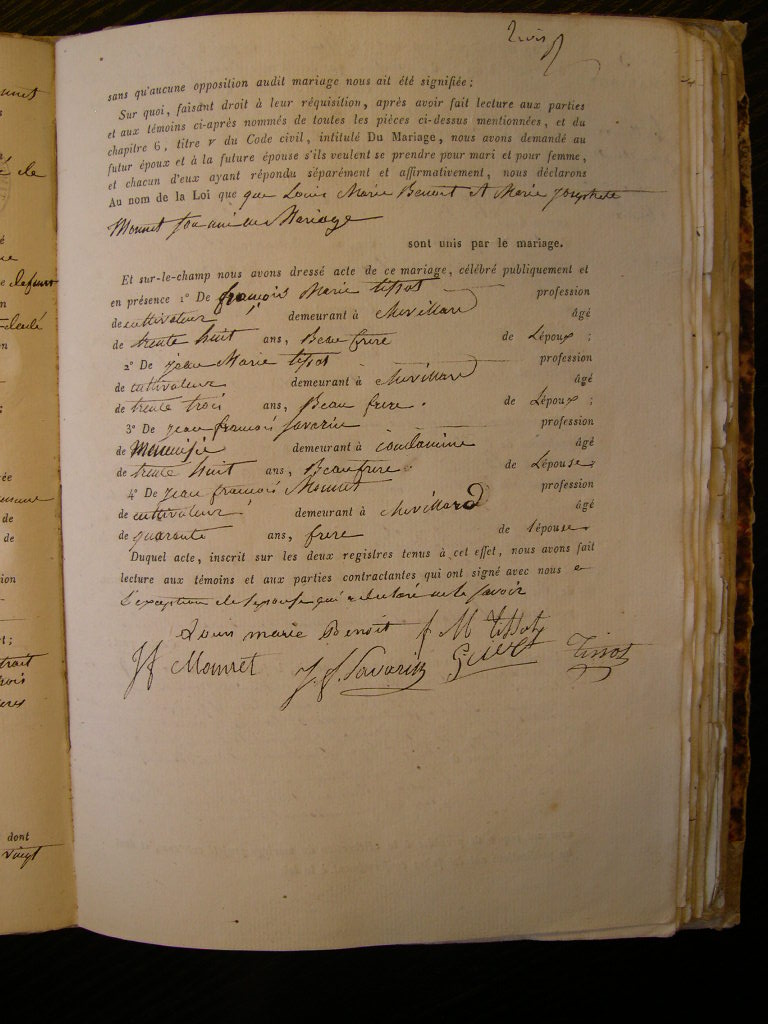 trois
sans qu'aucune opposition audit mariage nous ait été signifiée;
Sur quoi, faisant droit à leur réquisition, après avoir fait lecture aux parties
et aux témoins ci-après nommés de toutes les pièces ci-dessus mentionnées, et du
chapitre 6, titre v du Code civil, intitulé Du Mariage, nous avons demandé au
futur époux et à la future épouse s'ils veulent se prendre pour mari et pour femme,
et chacun d'eux ayant répondu séparément et affirmativement, nous déclarons
Au nom de la Loi que que Louis Marie Benoit et Marie Josephete
Monnet sont unis par le Mariage
sont unis par le mariage.
Et sur-le-champ nous avons dressé acte de ce mariage, célébré publiquement et
en présence 1º De françois Marie tissot profession
de cultivateur demeurant à chevillard âgé
de trente huit ans, Beau frere de Lépoux ;
2º De jean Marie tissot profession
de cultivateur demeurant à chevillard âgé
de trente trois ans, Beau frere . de Lépoux ;
3º De jean françois Savarin profession
de Menuisié demeurant à condamine âgé
de trente huit ans, Beaufrere de Lépouse;
4º De jean françois Monnet profession
de cultivateur demeurant à chevillard âgé
de quarante ans, frere de lépouse
Duquel acte, inscrit sur les deux registres tenus à cet effet, nous avons fait
lecture aux témoins et aux parties contractantes qui ont signé avec nous a
l'exception de lepouse qui a declaré ne le savoir
Louis marie Benoit f M tissot
Jf Monnet J. f. Savarin Tissot
defunt
de
de
dont
vingt